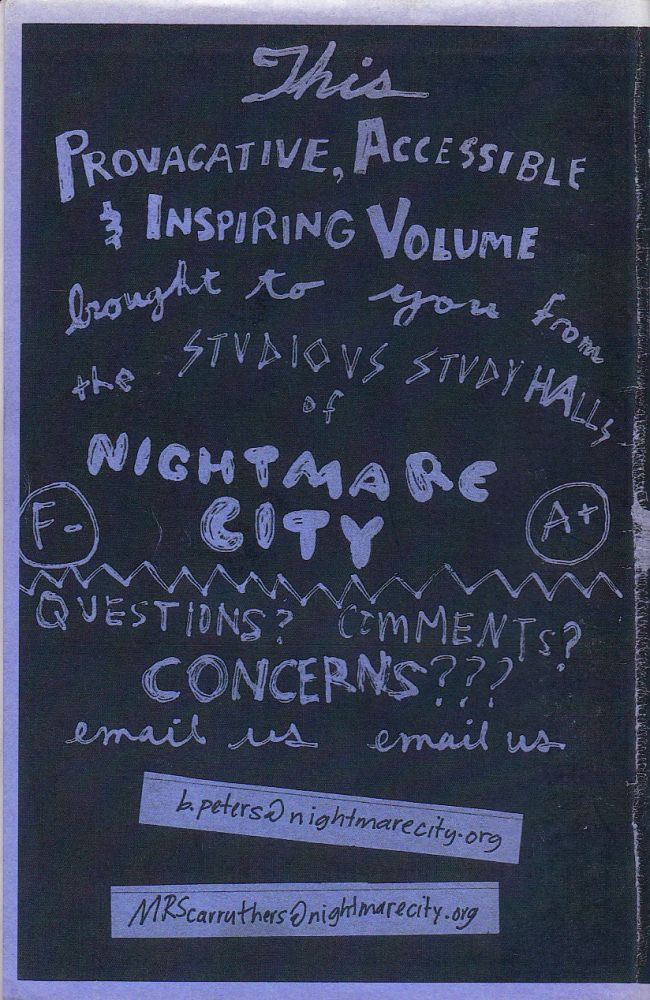 This
PROVACATIVE, ACCESSIBLE
& INSPIRING VOLUME
brought to you from
the STUDIOUS STUDY HALLS
of
NIGHTMARE
CITY
F- A+
QUESTIONS? COMMENTS?
CONCERNS???
email us email us
b.peters@nightmarecity.org
MRScarruthers@nightmarecity.org